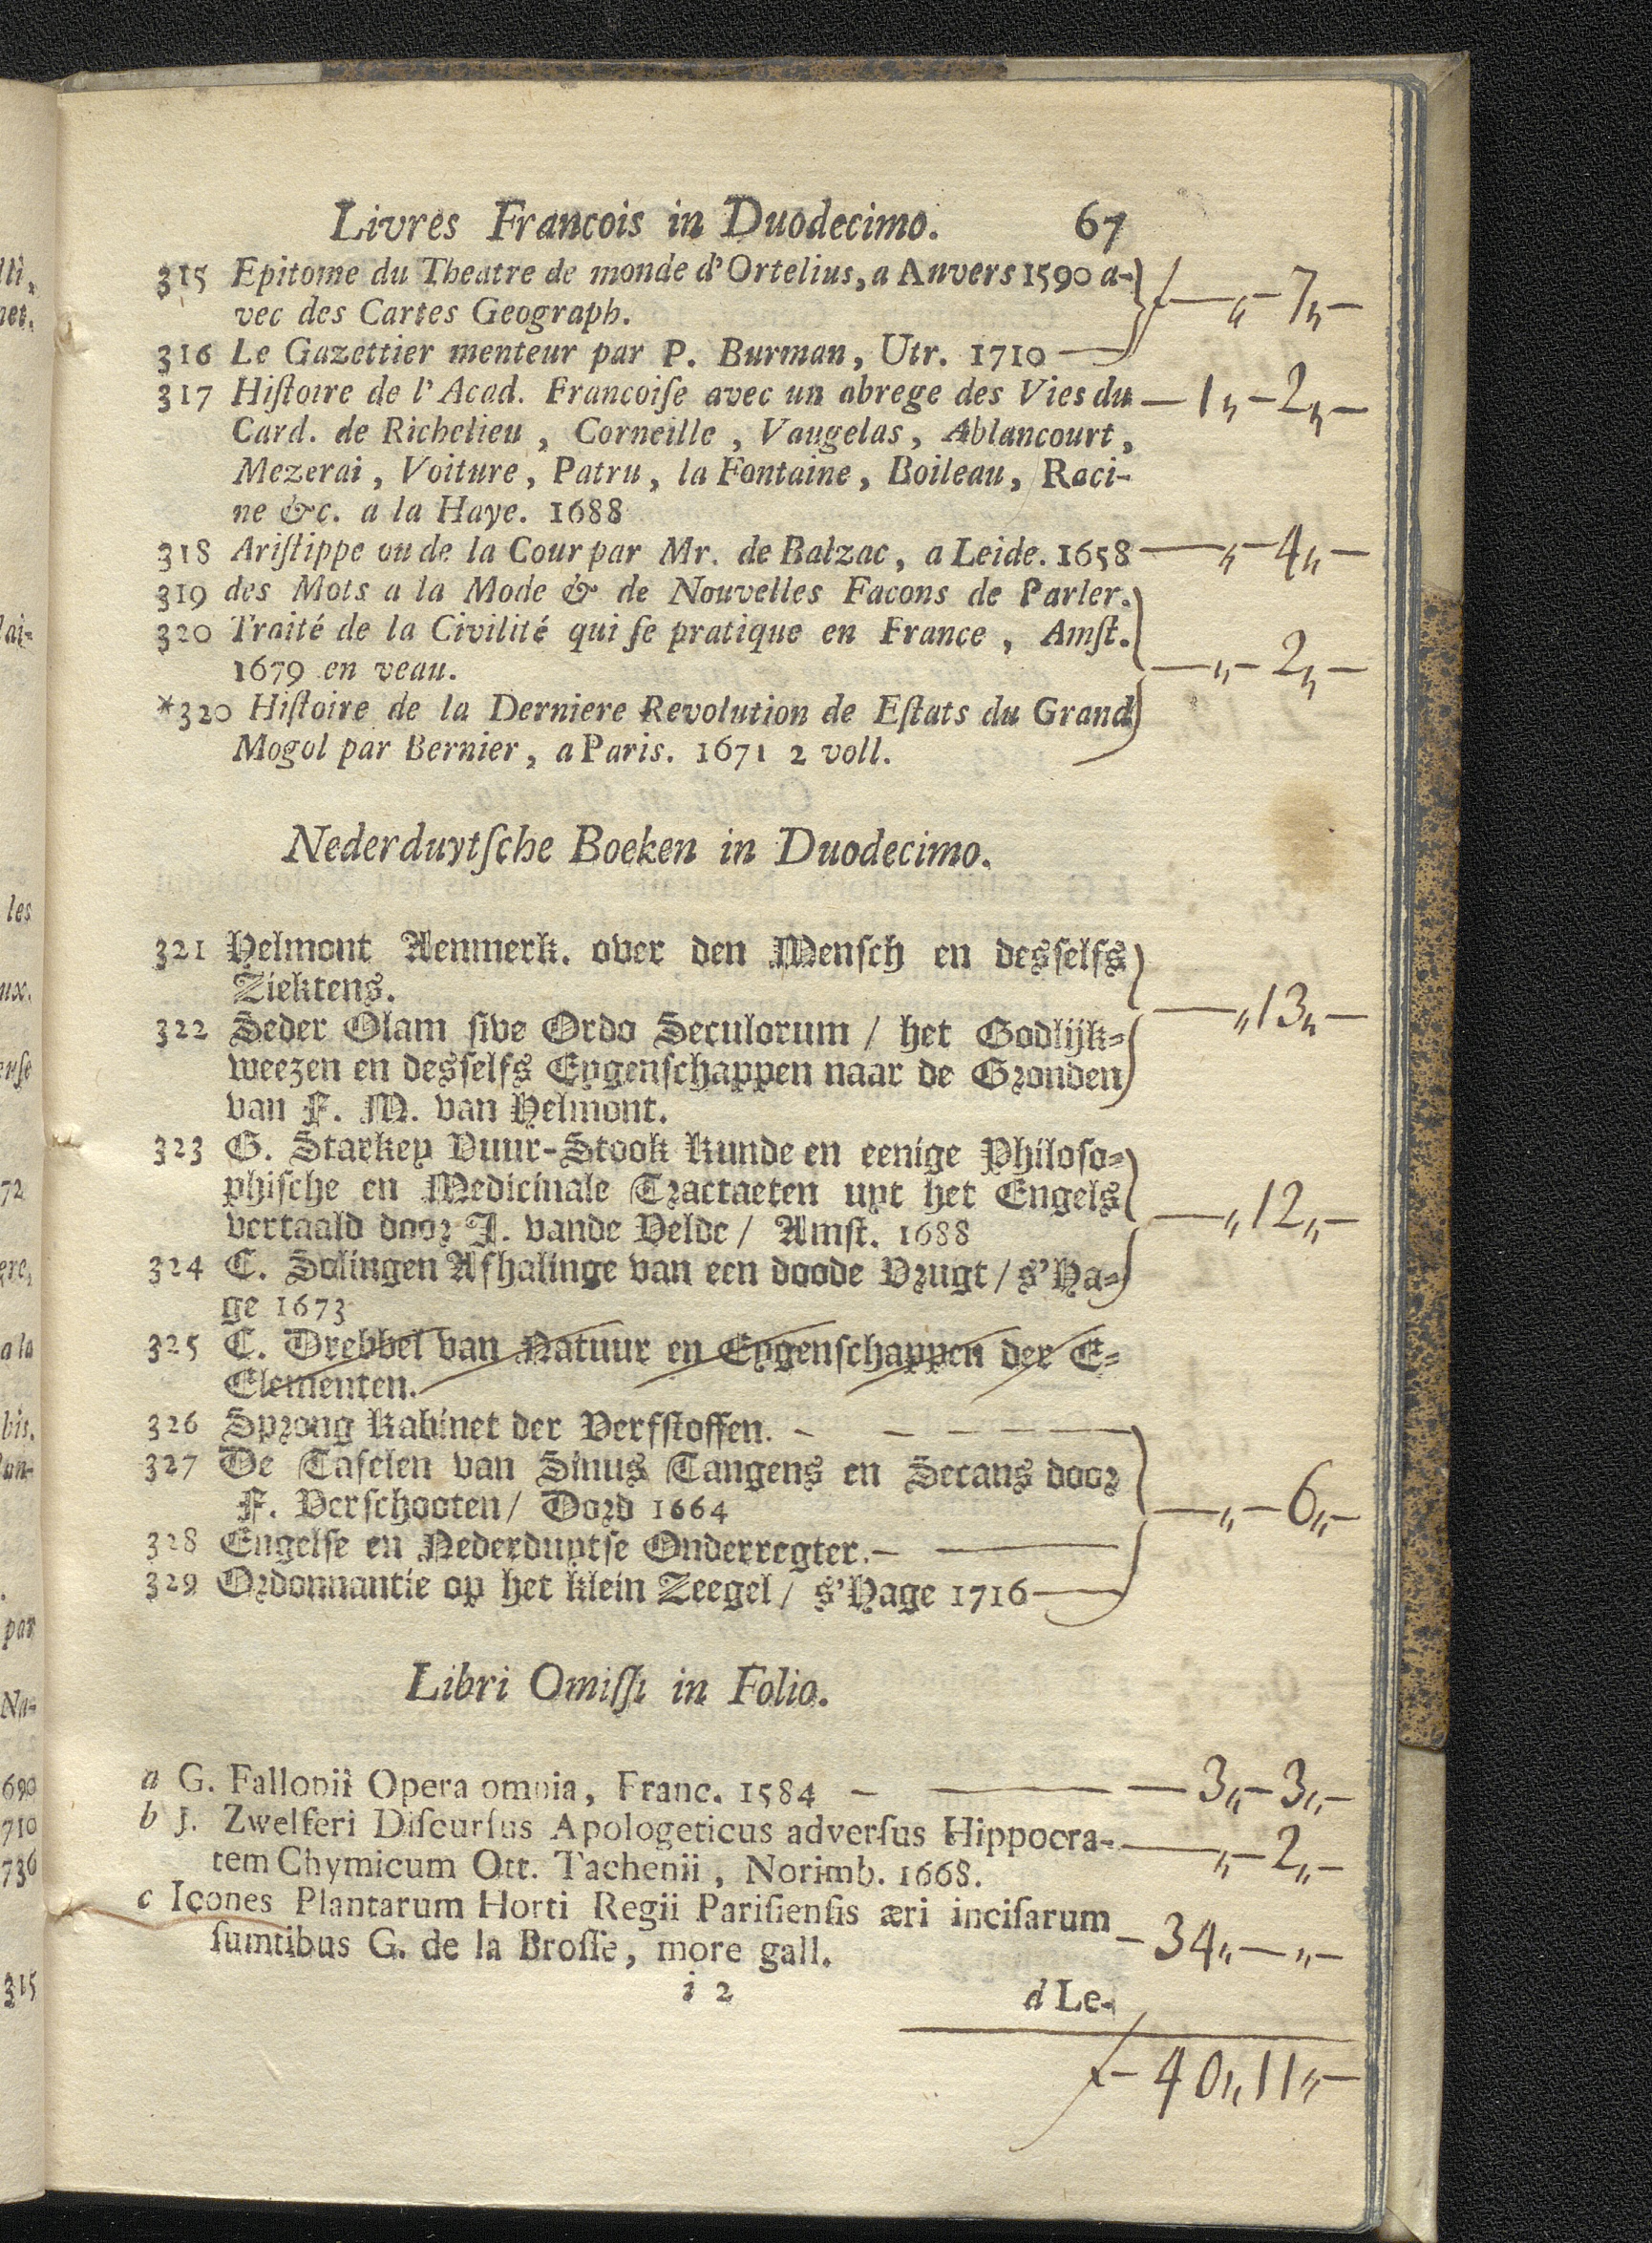 Livres Francois in Duodecimo. 67
315 Epitome du Theatre de monde d'Ortelius, a Anvers 1590 a-
vec des Cartes Geograph. — „ — 7 „ —
316 Le Gazettier menteur par P. Burman, Utr. 1710 —
317 Hiſtoire de l'Acad. Francoiſe avec un abrege des Vies du — 1 „ — 2 „ —
Card. de Richelieu, Corneille, Vaugelas, Ablancourt,
Mezerai, Voiture, Patru, la Fontaine, Boileau, Raci-
ne &c. a la Haye. 1688
318 Ariſtippe ou de la Cour par Mr. de Balzac, a Leide. 1658 — „ — 4 „ —
319 des Mots a la Mode & de Nouvelles Facons de Parler.
320 Traité de la Civilité qui ſe pratique en France, Amſt.
1679 en veau. — „ — 2 „ —
*320 Hiſtoire de la Derniere Revolution de Eſtats du Grand
Mogol par Bernier, a Paris. 1671 2 voll.
Nederduytſche Boeken in Duodecimo.
321 Helmont Aenmerk. over den Menſch en desſelfs
Ziektens. — „ 13 „ —
322 Seder Olam ſive Ordo Seculorum / het Godlijk-
weezen en desſelfs Eygenſchappen naar de Gronden
van F. M. van Helmont.
323 G. Starkey Vuur-Stook kunde en eenige Philoſo-
phiſche en Medicinale Tractaeten uyt het Engels
vertaald door J. vande Velde / Amſt. 1688 — „ 12 „ —
324 C. Solingen Afhalinge van een doode Vrugt / s'Ha-
ge 1673
325 C. Drebbel van Natuur en Eygenſchappen der E-
Elementen.
326 Sprong Kabinet der Verfſtoffen. — — — —
327 De Tafelen van Sinus Tangens en Secans door
F. Verſchooten / Dord 1664 — „ — 6 „ —
328 Engelſe en Nederduytſe Onderregter. — —
329 Ordonnantie op het klein Zeegel / s'Hage 1716 —
Libri Omiſſi in Folio.
a G. Fallopii Opera omnia, Franc. 1584 — — — 3 „ — 3 „ —
b J. Zwelferi Diſcurſus Apologeticus adverſus Hippocra- — „ — 2 „ —
tem Chymicum Ott. Tachenii, Norimb. 1668.
c Icones Plantarum Horti Regii Pariſienſis æri inciſarum — 34 „ — „ —
ſumtibus G. de la Broſſe, more gall.
i 2 d Le-
ƒ — 40 „ 11 „ —